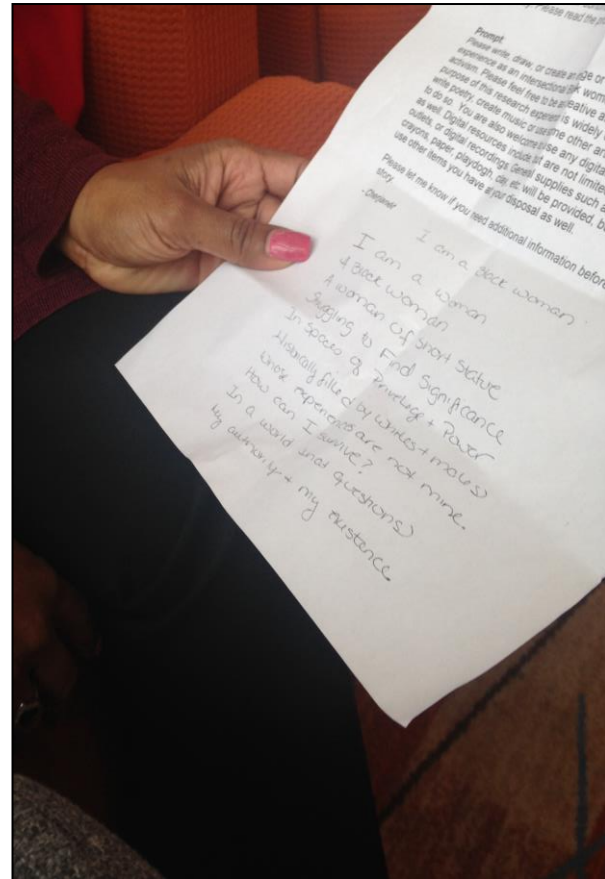 Please read the
Prompt
Please write, draw, or create an
experience as an intersectional wom
activism. Please feel free to be as creative a
purpose of this research experient is widely
write poetry, create music or use some other ar
to do so. You are also welcome to use any digita
as well. Digital resources include but are not limite
outlets, or digital recordings General supplies such a
crayons, paper, playdogh, clay, etc. will be provided, b
use other items you have at your disposal as well.
Please let me know if you need additional information before
story.
I am a Black woman
I am a woman
A Black woman
A woman of short statue
Struggling to Find Significance
In spaces of Privelege + Power
Historically filled by whites + males)
whose experiences are not mine.
How can I survive?
In a world that questions)
my authority + my existence